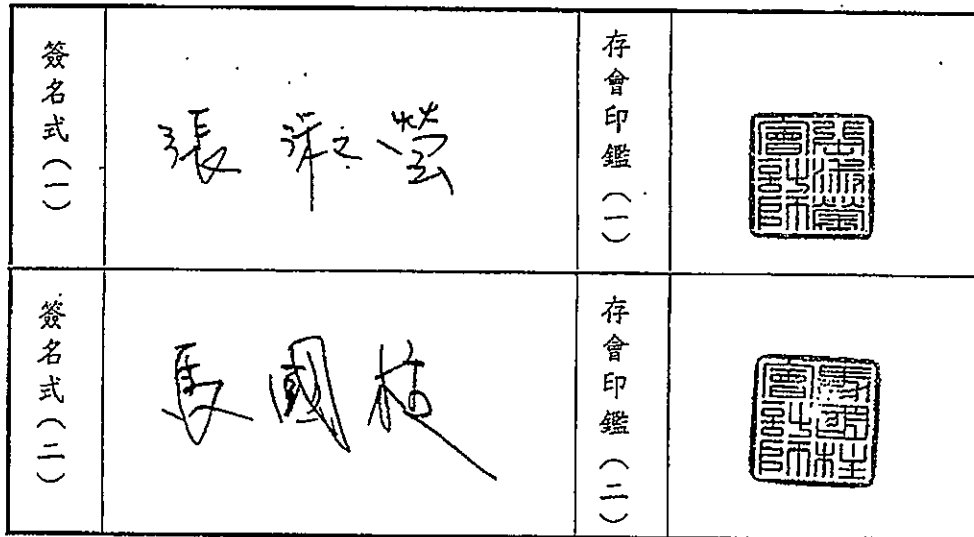 簽名式(一)
張淑瑩
存會印鑑(一)
張淑瑩
會計師
簽名式(二)
馬國柱
存會印鑑(二)
馬國柱
會計師